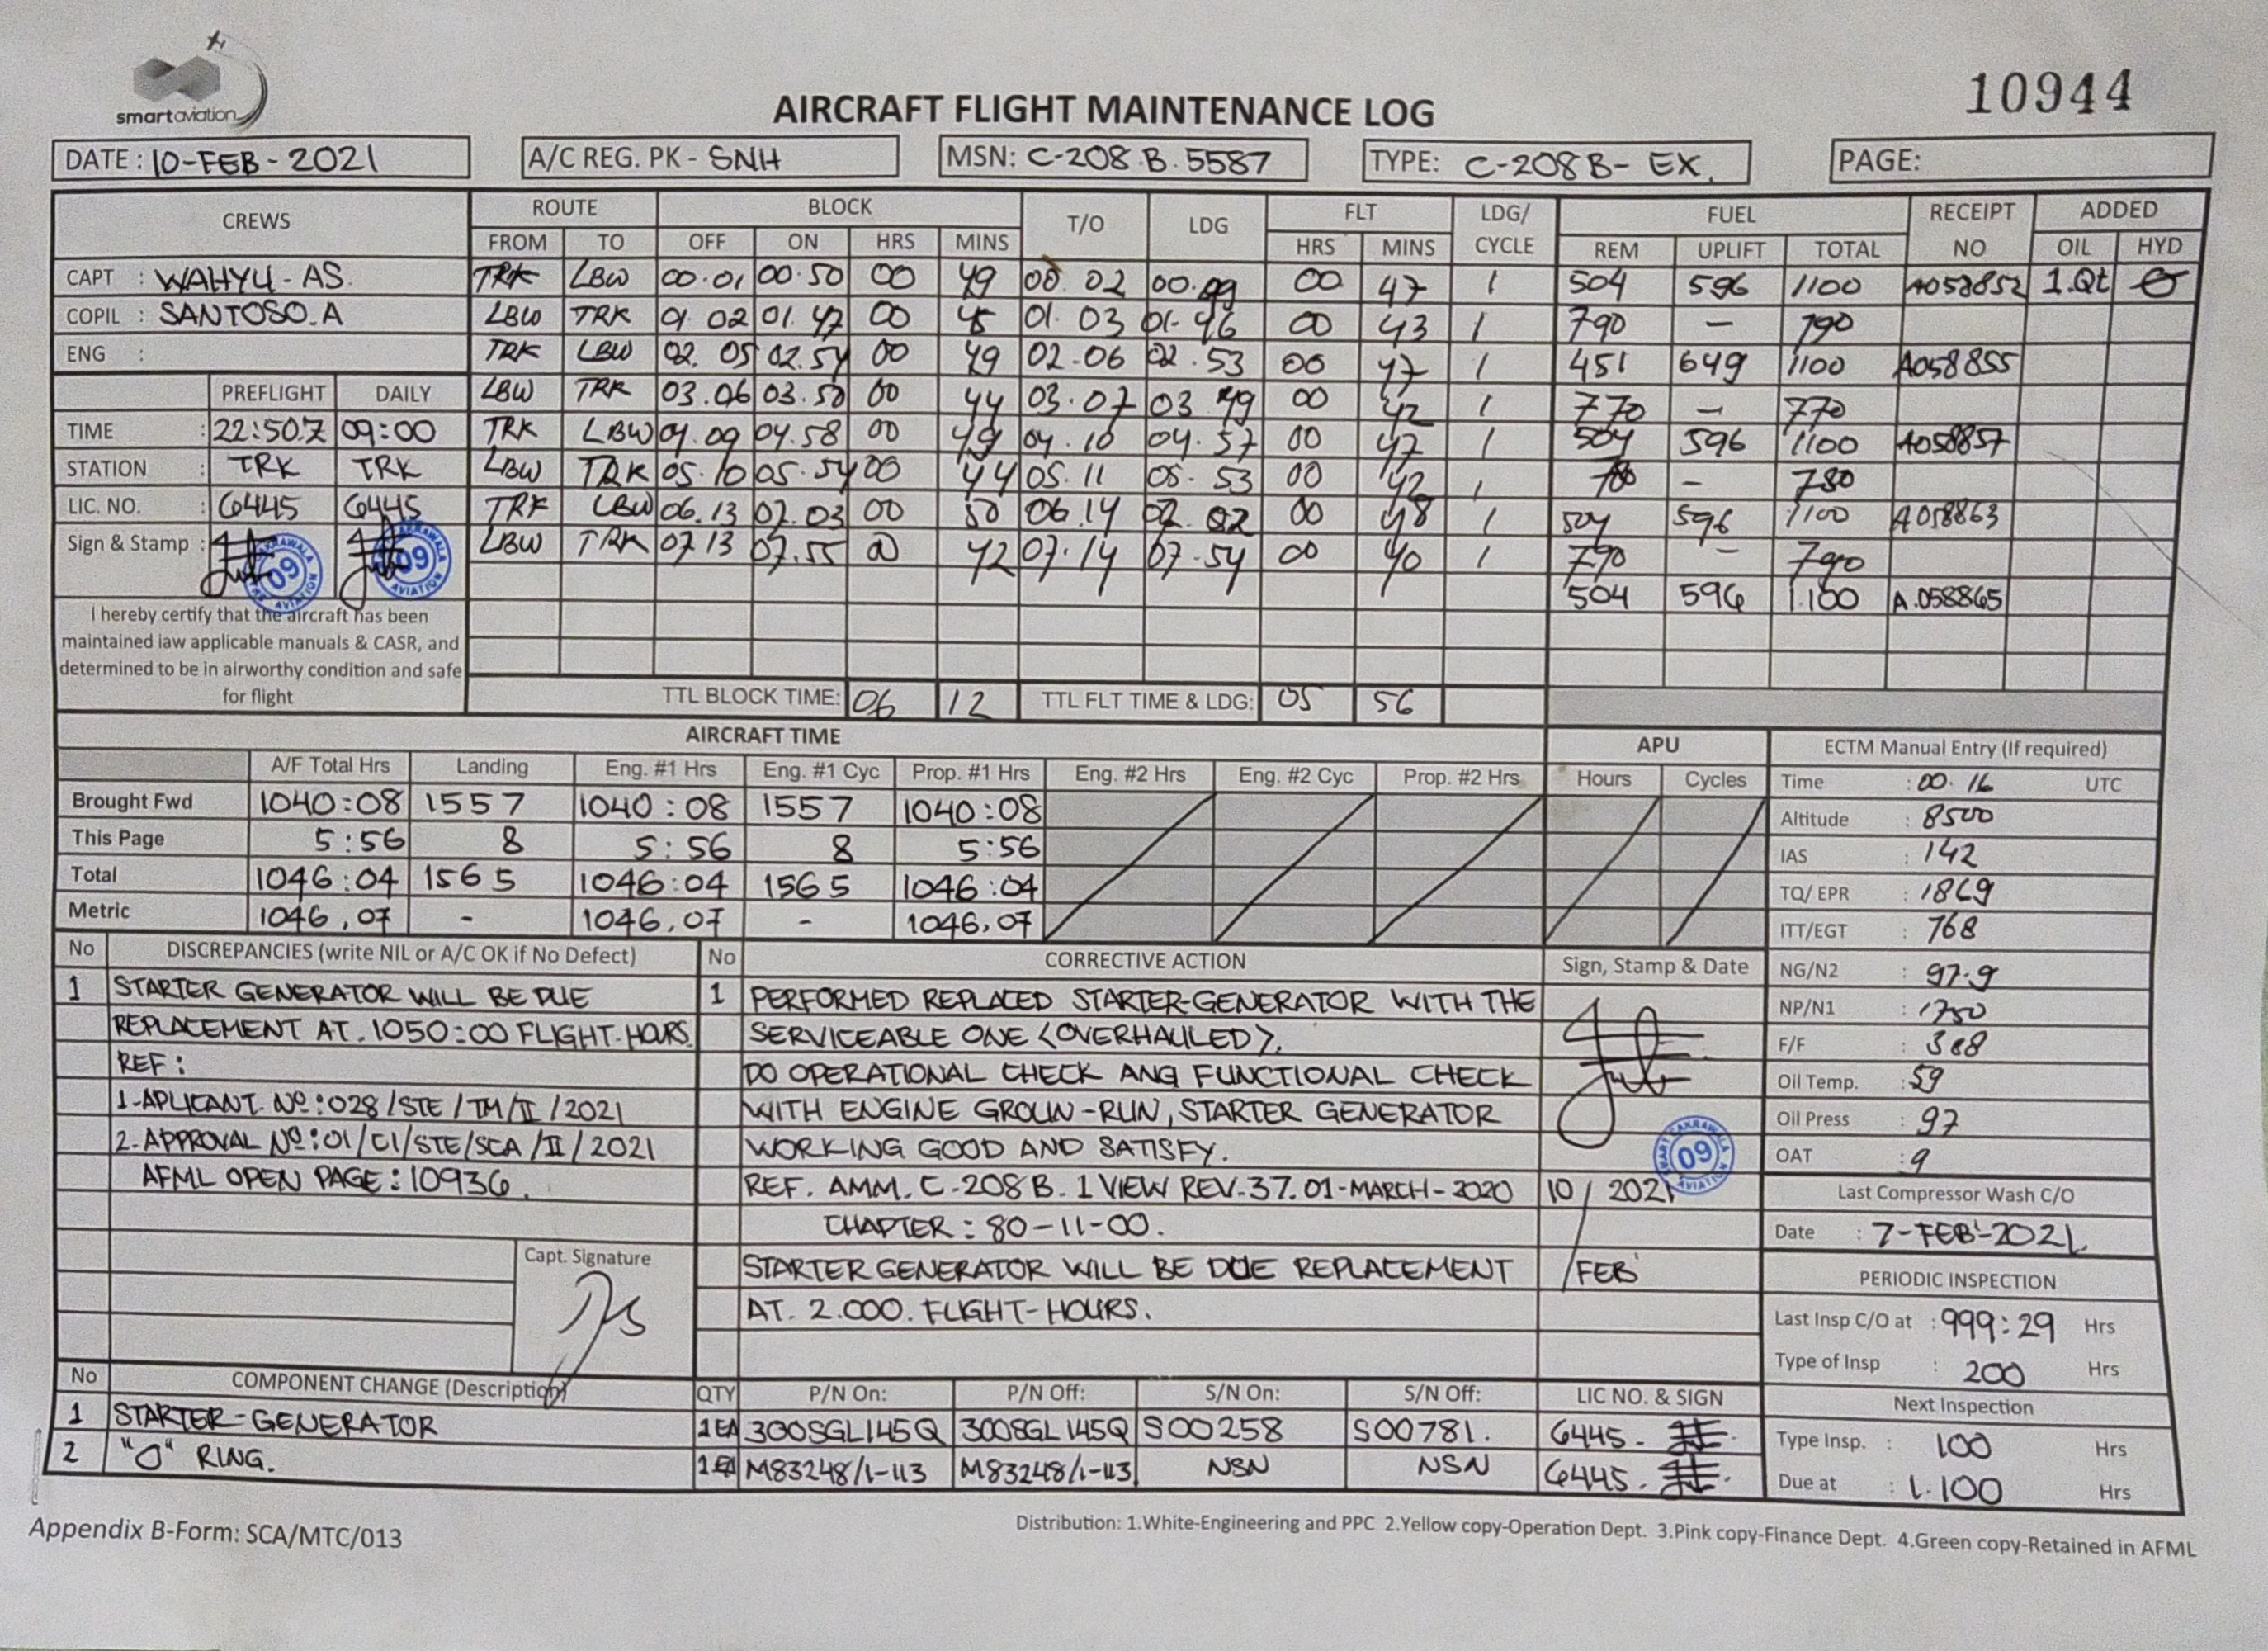 smartaviation
10944
AIRCRAFT FLIGHT MAINTENANCE LOG
DATE : 10-FEB-2021 A/C REG. PK - SNH MSN: C-208.B.5587 TYPE: C-208B-EX. PAGE:
CREWS ROUTE BLOCK T/O LDG FLT LDG/ CYCLE FUEL RECEIPT NO ADDED
FROM TO OFF ON HRS MINS HRS MINS REM UPLIFT TOTAL OIL HYD
CAPT : WAHYU-AS. TRK LBW 00.01 00.50 00 49 00.02 00.49 00 47 1 504 596 1100 A058852 1.Qt
COPIL : SANTOSO.A LBW TRK 01.02 01.47 00 45 01.03 01-46 00 43 1 790 - 790
ENG : TRK LBW 02.05 02.54 00 49 02-06 02.53 00 47 1 451 649 1100 A058855
PREFLIGHT DAILY LBW TRK 03.06 03.50 00 44 03.07 03 49 00 42 1 770 - 770
TIME : 22:50.Z 09:00 TRK LBW 04.09 04.58 00 49 04.10 04.57 00 47 1 504 596 1100 A058857
STATION : TRK TRK LBW TRK 05.10 05.54 00 44 05.11 05-53 00 42 1 - 780
LIC. NO. : 6445 6445 TRK LBW 06.13 07.03 00 50 06.14 07.02 00 48 1 504 596 1100 A058863
Sign & Stamp : 09 09 LBW TRK 07.13 07.55 00 42 07.14 07.54 00 40 1 790 - 790
504 596 1.100 A.058865
I hereby certify that the aircraft has been
maintained law applicable manuals & CASR, and
determined to be in airworthy condition and safe
for flight
TTL BLOCK TIME: 06 12 TTL FLT TIME & LDG: 05 56
AIRCRAFT TIME APU ECTM Manual Entry (If required)
A/F Total Hrs Landing Eng. #1 Hrs Eng. #1 Cyc Prop. #1 Hrs Eng. #2 Hrs Eng. #2 Cyc Prop. #2 Hrs Hours Cycles Time : 00.16 UTC
Brought Fwd 1040:08 1557 1040:08 1557 1040:08 Altitude : 8500
This Page 5:56 8 5:56 8 5:56 IAS : 142
Total 1046:04 1565 1046:04 1565 1046:04 TQ/ EPR : 1869
Metric 1046,07 - 1046,07 - 1046,07 ITT/EGT : 768
No DISCREPANCIES (write NIL or A/C OK if No Defect) No CORRECTIVE ACTION Sign, Stamp & Date NG/N2 : 97.9
1 STARTER GENERATOR WILL BE DUE 1 PERFORMED REPLACED STARTER-GENERATOR WITH THE NP/N1 : 1750
REPLACEMENT AT. 1050:00 FLIGHT-HOURS. SERVICEABLE ONE <OVERHAULED>. F/F : 388
REF : DO OPERATIONAL CHECK ANG FUNCTIONAL CHECK Oil Temp. : 59
1-APLICANT. Nº:028/STE/TM/II/2021 WITH ENGINE GROUN-RUN, STARTER GENERATOR Oil Press : 97
2-APPROVAL Nº:01/CI/STE/SCA/II/2021 WORKING GOOD AND SATISFY. 09 OAT : 9
AFML OPEN PAGE: 10936. REF. AMM. C-208B. 1 VIEW REV-37. 01-MARCH-2020 10/FEB 2021 Last Compressor Wash C/O
CHAPTER : 80-11-00. Date : 7-FEB-2021.
Capt. Signature STARTER GENERATOR WILL BE DUE REPLACEMENT PERIODIC INSPECTION
AT. 2.000. FLIGHT-HOURS. Last Insp C/O at : 999:29 Hrs
Type of Insp : 200 Hrs
No COMPONENT CHANGE (Description) QTY P/N On: P/N Off: S/N On: S/N Off: LIC NO. & SIGN Next Inspection
1 STARTER-GENERATOR 1EA 300SGL145Q 300SGL145Q S00258 S00781. 6445. Type Insp. : 100 Hrs
2 "O" RING. 1EA M83248/1-113 M83248/1-113 NSN NSN 6445. Due at : 1.100 Hrs
Appendix B-Form: SCA/MTC/013
Distribution: 1.White-Engineering and PPC 2.Yellow copy-Operation Dept. 3.Pink copy-Finance Dept. 4.Green copy-Retained in AFML